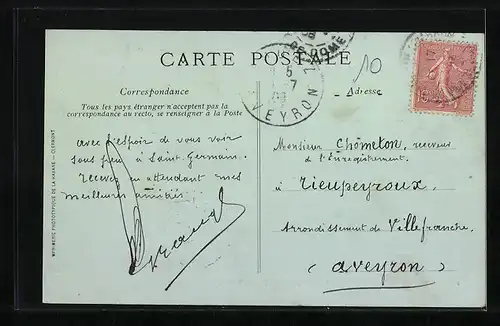 CARTE POSTALE
10
Correspondance
Adresse
Tous les pays étranger n'acceptent pas la
correspondance au recto, se renseigner à la Poste
avec l'espoir de vous voir
sous peu à Saint Germain.
Recevez en attendant mes
meilleures amitiés
Monsieur Chômeton, receveur
de l'Enregistrement.
à Rieupeyroux,
Arrondissement de Villefranche,
(Aveyron)
IMPRIMERIE PHOTOTYPIQUE DE LA HALANE - CLERMONT
5
7
VEYRON
DE-DOME